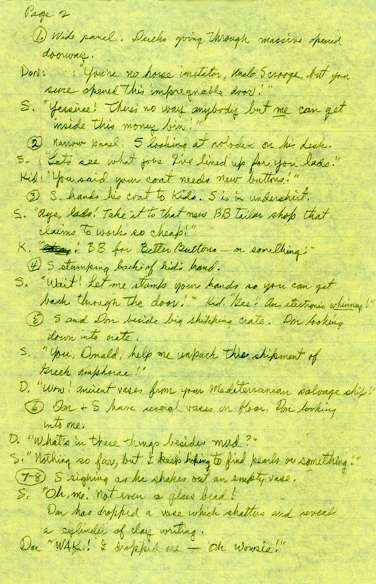 Page 2
① Wide panel. Ducks going through massive opened
doorway.
Don: "You're no horse imitator, Unca Scrooge, but you
sure opened this impregnable door!"
S. "Yessiree! There's no way anybody but me can get
inside this money bin."
② Narrow panel. S looking at rolodex on his desk.
S. "Let's see what jobs I've lined up for you lads."
Kid: "You said your coat needs new buttons!"
③ S. hands his coat to Kids. S is in undershirt.
S. "Aye, lads! Take it to that new BB tailor shop that
claims to work so cheap!"
K. "BB for Better Buttons — or something!"
④ S stamping back of kid's hand.
S. "Wait! Let me stamp your hands so you can get
back through the door!" Kid. Gee! An electronic whinny!"
⑤ S and Don beside big shipping crate. Don looking
down into crate.
S. "You, Donald, help me unpack this shipment of
Greek amphorae!"
D. "Wow! Ancient vases from your Mediterranean salvage ship!"
⑥ Don + S have several vases on floor. Don looking
into one.
D. "What's in these things besides mud?"
S. "Nothing so far, but I keep hoping to find pearls or something!"
⑦-8 S sighing as he shakes out an empty vase.
S. "Oh, me. Not even a glass bead!
Don has dropped a vase which shatters and reveals
a cylinder of clay writing.
Don "WAK! I dropped one — Oh Wowie!"